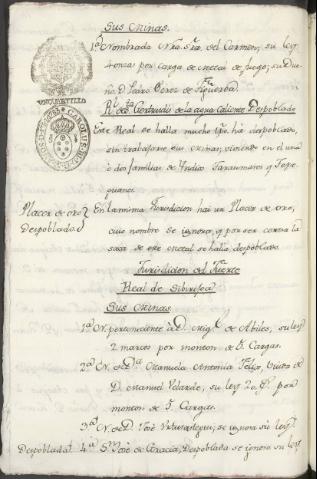 Sus Minas.
1ª Nombrada Nrâ. Srâ. del Carmen, su ley
4 onzas por carga de metal de fuego; su Due-
ño D. Pedro Perez de Figueroa.
Rl. de Sta. Gertrudis de la agua caliente, Despoblado
Este Real se halla mucho há despoblado,
sin trabajarse sus minas, viviendo en el unas
dos familias de Indios Taraumares y Tepe-
guanes.
Placer de oro
despoblado
En la misma Jurisdicion hai un Placer de oro,
cuio nombre se ignora, y por ser corta la
saca de este metal se halla despoblado.
Jurisdicion del Fuerte
Real de Sibirijoa
Sus Minas
1ª N. perteneciente à D. Migl. de Abiles, su ley
2 marcos por monton de 5. Cargas.
2ª N. de Dª. Manuela Antonia Feliz, Viuda de
D. Manuel Velarde, su ley por
monton de 5. Cargas.
3ª N. de D. José se ignora su ley.
Despoblada. 4ª S. José de Gracia, Despoblada se ignora su ley